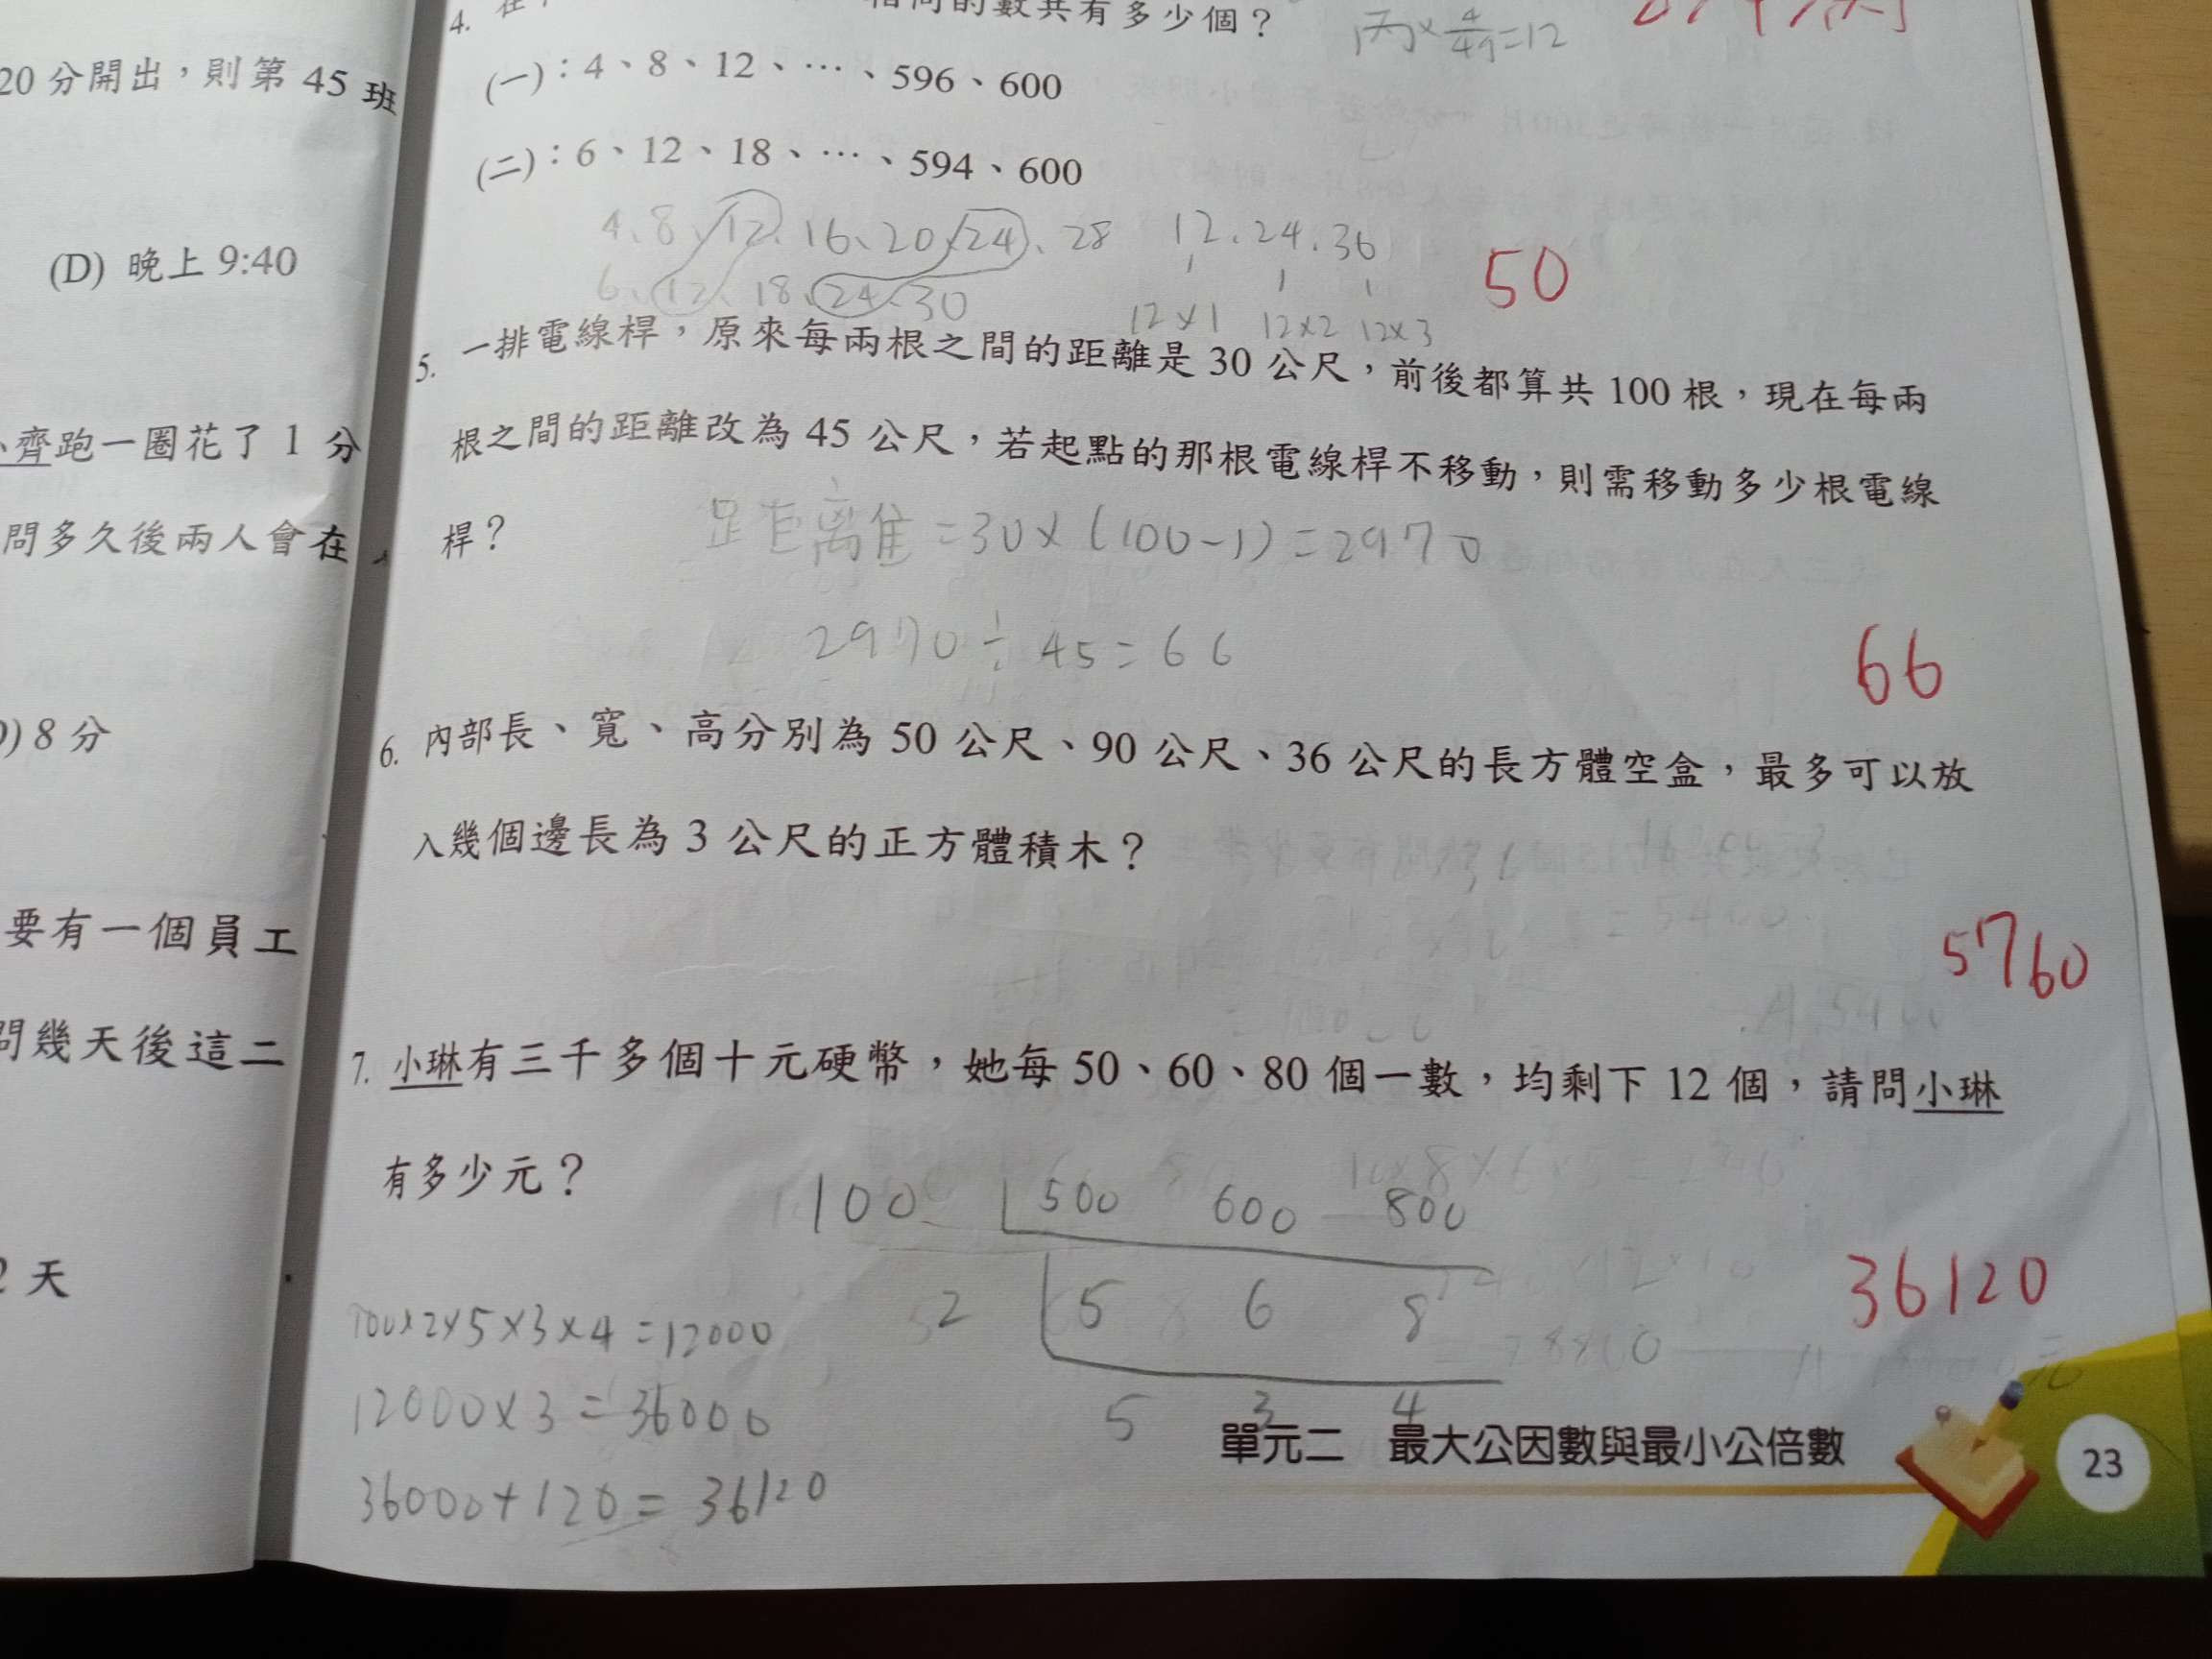 20 分開出，則第 45 班
(D) 晚上 9:40
小齊跑一圈花了 1 分
問多久後兩人會在
8 分
要有一個員工
問幾天後這二
2 天
4.
相同的數共有多少個？
丙×4/49=12
(一)：4、8、12、…、596、600
(二)：6、12、18、…、594、600
4、8、12、16、20、24、28
6、12、18、24、30
12、24、36
12×1 12×2 12×3
50
5. 一排電線桿，原來每兩根之間的距離是 30 公尺，前後都算共 100 根，現在每兩
根之間的距離改為 45 公尺，若起點的那根電線桿不移動，則需移動多少根電線
桿？
距離=30×(100-1)=2970
2970÷45=66
66
6. 內部長、寬、高分別為 50 公尺、90 公尺、36 公尺的長方體空盒，最多可以放
入幾個邊長為 3 公尺的正方體積木？
5760
7. 小琳有三千多個十元硬幣，她每 50、60、80 個一數，均剩下 12 個，請問小琳
有多少元？
100 500 600 800
2 5 6 8
5 3 4
100×2×5×3×4=12000
12000×3=36000
36000+120=36120
36120
單元二 最大公因數與最小公倍數
23